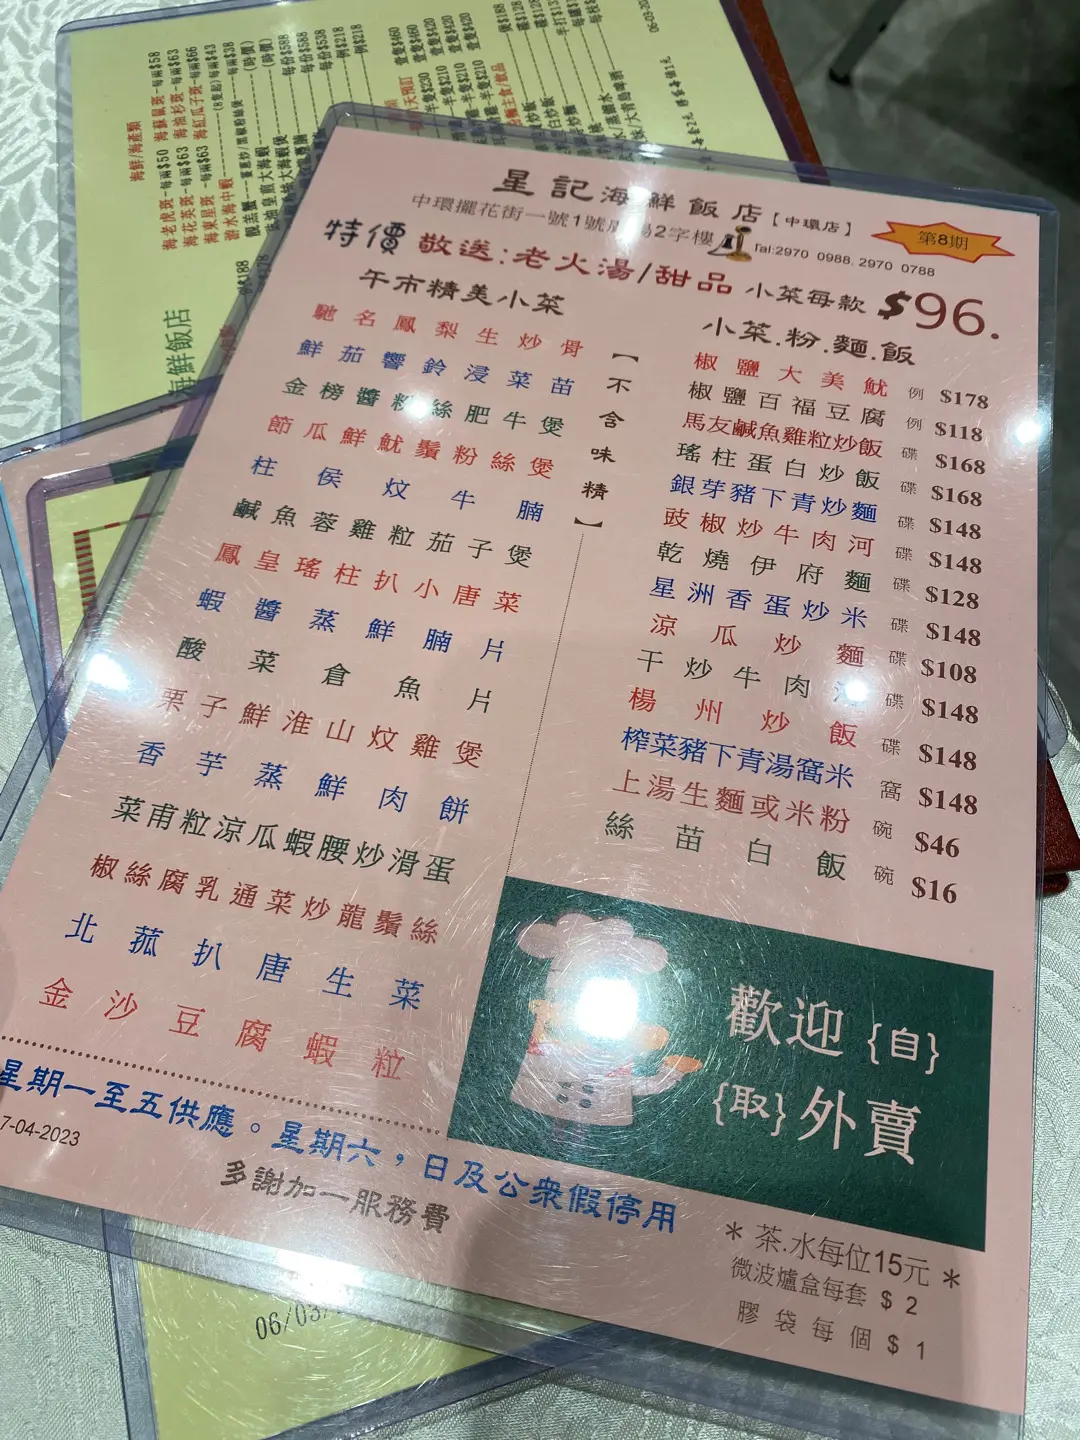 星記海鮮飯店【中環店】
中環擺花街一號1號廣場2字樓
Tal:2970 0988. 2970 0788
第8期
特價 敬送:老火湯/甜品 小菜每款 $96.
午市精美小菜
馳名鳳梨生炒骨
鮮茄響鈴浸菜苗
金榜醬粉絲肥牛煲
節瓜鮮魷鬚粉絲煲
柱侯炆牛腩
鹹魚蓉雞粒茄子煲
鳳皇瑤柱扒小唐菜
蝦醬蒸鮮腩片
酸菜倉魚片
栗子鮮淮山炆雞煲
香芋蒸鮮肉餅
菜甫粒涼瓜蝦腰炒滑蛋
椒絲腐乳通菜炒龍鬚絲
北菰扒唐生菜
金沙豆腐蝦粒
【不含味精】
小菜.粉.麵.飯
椒鹽大美魷 例 $178
椒鹽百福豆腐 例 $118
馬友鹹魚雞粒炒飯 碟 $168
瑤柱蛋白炒飯 碟 $168
銀芽豬下青炒麵 碟 $148
豉椒炒牛肉河 碟 $148
乾燒伊府麵 碟 $128
星洲香蛋炒米 碟 $148
涼瓜炒麵 碟 $108
干炒牛肉 碟 $148
楊州炒飯 碟 $148
榨菜豬下青湯窩米 窩 $148
上湯生麵或米粉 碗 $46
絲苗白飯 碗 $16
歡迎{自}
{取}外賣
星期一至五供應。星期六，日及公衆假停用
7-04-2023
多謝加一服務費
＊茶.水每位15元＊
微波爐盒每套 $ 2
膠袋每個 $ 1
海鮮飯店
海鮮/海產類
海老虎斑-每兩$50 海蘇鼠斑-每兩$58
海花英斑-每兩$63 海油杉斑-每兩$63
海東星斑-每兩$63 海紅瓜子斑-每兩$66
游水海中蝦
06/03/